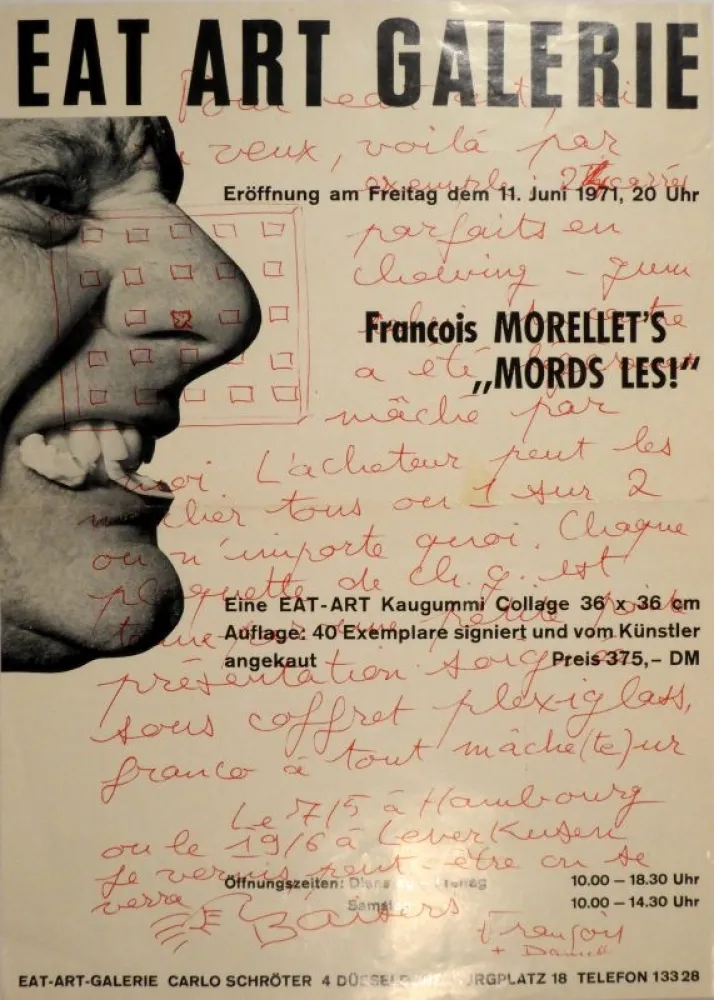 EAT ART GALERIE
Pour eat art, si
veux, voilà par
exemple: 25 carrés
Eröffnung am Freitag dem 11. Juni 1971, 20 Uhr
parfaits en
chewing-gum
Francois MORELLET'S
a été
„MORDS LES!"
mâché par
moi L'acheteur peut les
mâcher tous ou 1 sur 2
ou n'importe quoi. Chaque
plaquette de ch. g. est
Eine EAT-ART Kaugummi Collage 36 x 36 cm
tenue par une petite pointe
Auflage: 40 Exemplare signiert und vom Künstler
angekaut Preis 375,– DM
présentation
sous coffret plexiglass,
franco à tout mâche(te)ur
Le 7/5 à Hambourg
ou le 19/6 à Leverkusen
je verrais peut-être on se
Öffnungszeiten: 10.00 – 18.30 Uhr
verra
10.00 – 14.30 Uhr
Baisers
François
+
EAT-ART-GALERIE CARLO SCHRÖTER 4 18 TELEFON 133 28